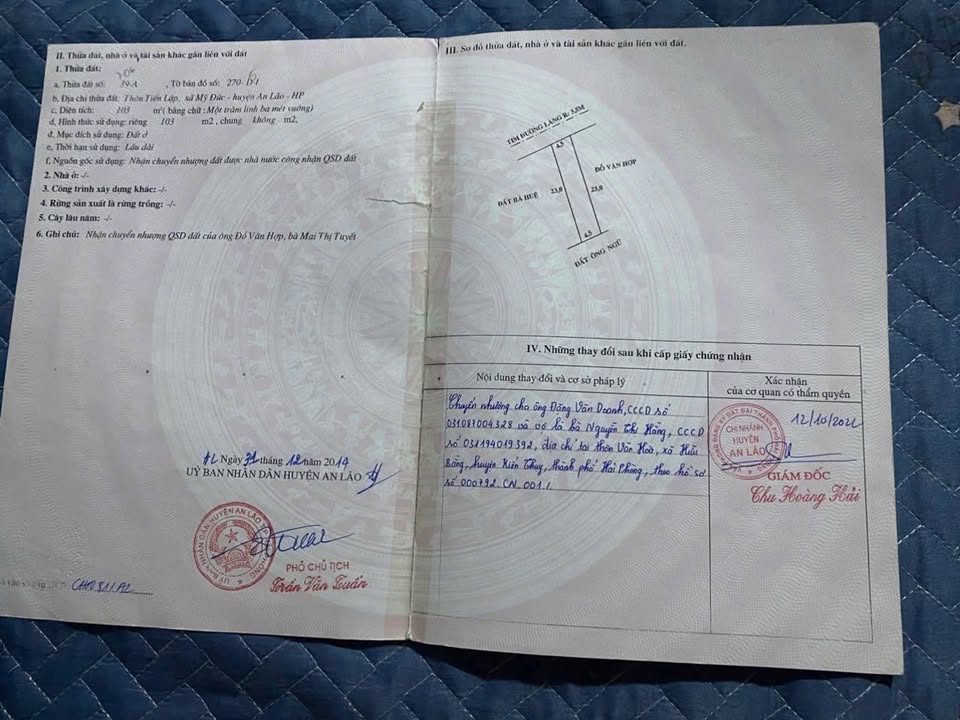 II. Thửa đất, nhà ở và tài sản khác gắn liền với đất
1. Thửa đất:
a, Thửa đất số: , Tờ bản đồ số: 270-
b, Địa chỉ thửa đất: Thôn Tiến Lập, xã Mỹ Đức - huyện An Lão - HP
c, Diện tích: 103 m² ( bằng chữ : Một trăm linh ba mét vuông)
d, Hình thức sử dụng: riêng 103 m2 , chung không m2,
đ, Mục đích sử dụng: Đất ở
e, Thời hạn sử dụng: Lâu dài
f, Nguồn gốc sử dụng: Nhận chuyển nhượng đất được nhà nước công nhận QSD đất
2. Nhà ở: -/-
3. Công trình xây dựng khác: -/-
4. Rừng sản xuất là rừng trồng: -/-
5. Cây lâu năm: -/-
6. Ghi chú: Nhận chuyển nhượng QSD đất của ông Đỗ Văn Hợp, bà Mai Thị Tuyết
Ngày 31 tháng 12 năm 2014
UỶ BAN NHÂN DÂN HUYỆN AN LÃO
UỶ BAN NHÂN DÂN HUYỆN AN LÃO
PHÓ CHỦ TỊCH
Trần Văn Tuấn
III. Sơ đồ thửa đất, nhà ở và tài sản khác gắn liền với đất.
TIM ĐƯỜNG LÀNG R: 3,5M
4,5
ĐỖ VĂN HỢP
ĐẤT BÀ HUỆ
23,0
23,0
4,5
ĐẤT ÔNG NGŨ
IV. Những thay đổi sau khi cấp giấy chứng nhận
Nội dung thay đổi và cơ sở pháp lý
Xác nhận
của cơ quan có thẩm quyền
Chuyển nhượng cho ông Đặng Văn Doanh, CCCD số
031087004328 và vợ là bà Nguyễn Thị Hằng, CCCD
số 031194019392, địa chỉ tại thôn Văn Hoà, xã Hữu
Bằng, huyện Kiến Thụy, thành phố Hải Phòng, theo hồ sơ
số 000792.CN.001./.
12/10/2022
CHI NHÁNH
HUYỆN
AN LÃO
GIÁM ĐỐC
Chu Hoàng Hải